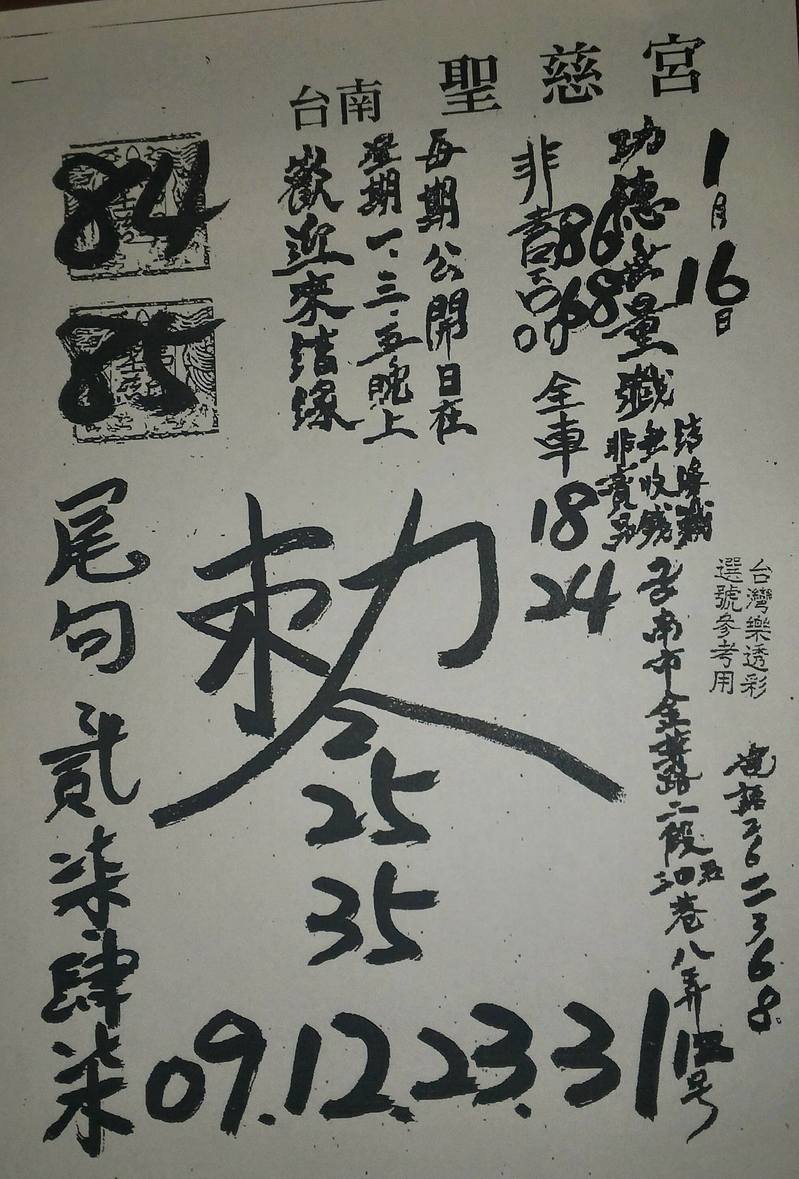 台南 聖慈宮
1月16日
功德無量
結緣
無收錢
非賣品
86
68
全車
18
24
每期公開日在
星期一、三、五晚上
歡迎來結緣
84
85
台灣樂透彩
選號參考用
南市金華路二段
巷八弄
号
電話2622368
敕
2
25
35
尾句
貳柒肆柒
09.12.23.31